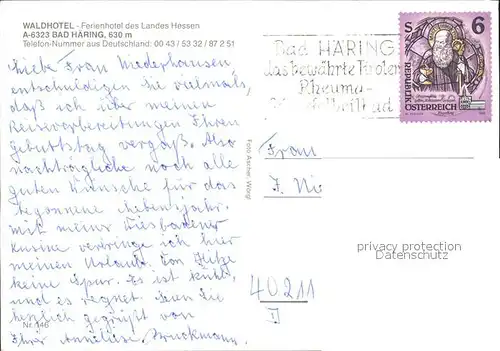 WALDHOTEL - Ferienhotel des Landes Hessen
A-6323 BAD HÄRING, 630 m
Telefon-Nummer aus Deutschland: 00 43 / 53 32 / 87 2 51
Liebe Frau Niederhausen
entschuldigen Sie vielmals,
daß ich über meinen
Reisevorbereitungen Ihren
Geburtstag vergaß. Also
nachträgliche noch alle
guten Wünsche für das
begonnene Lebensjahr.
Mit meiner Wiesbadener
Kusine verbringe ich hier
meinen Urlaub. Von Hitze
keine Spur. Es ist kühl,
und es regnet. Seien Sie
herzlich gegrüßt von
Ihrer Anneliese Bruckmann.
Nr. 146
Foto Ascher, Wörgl
Bad HÄRING
das bewährte Tiroler
Rheuma-
S 6
REPUBLIK
ÖSTERREICH
Frau
J. Ni
privacy protection
Datenschutz
40211